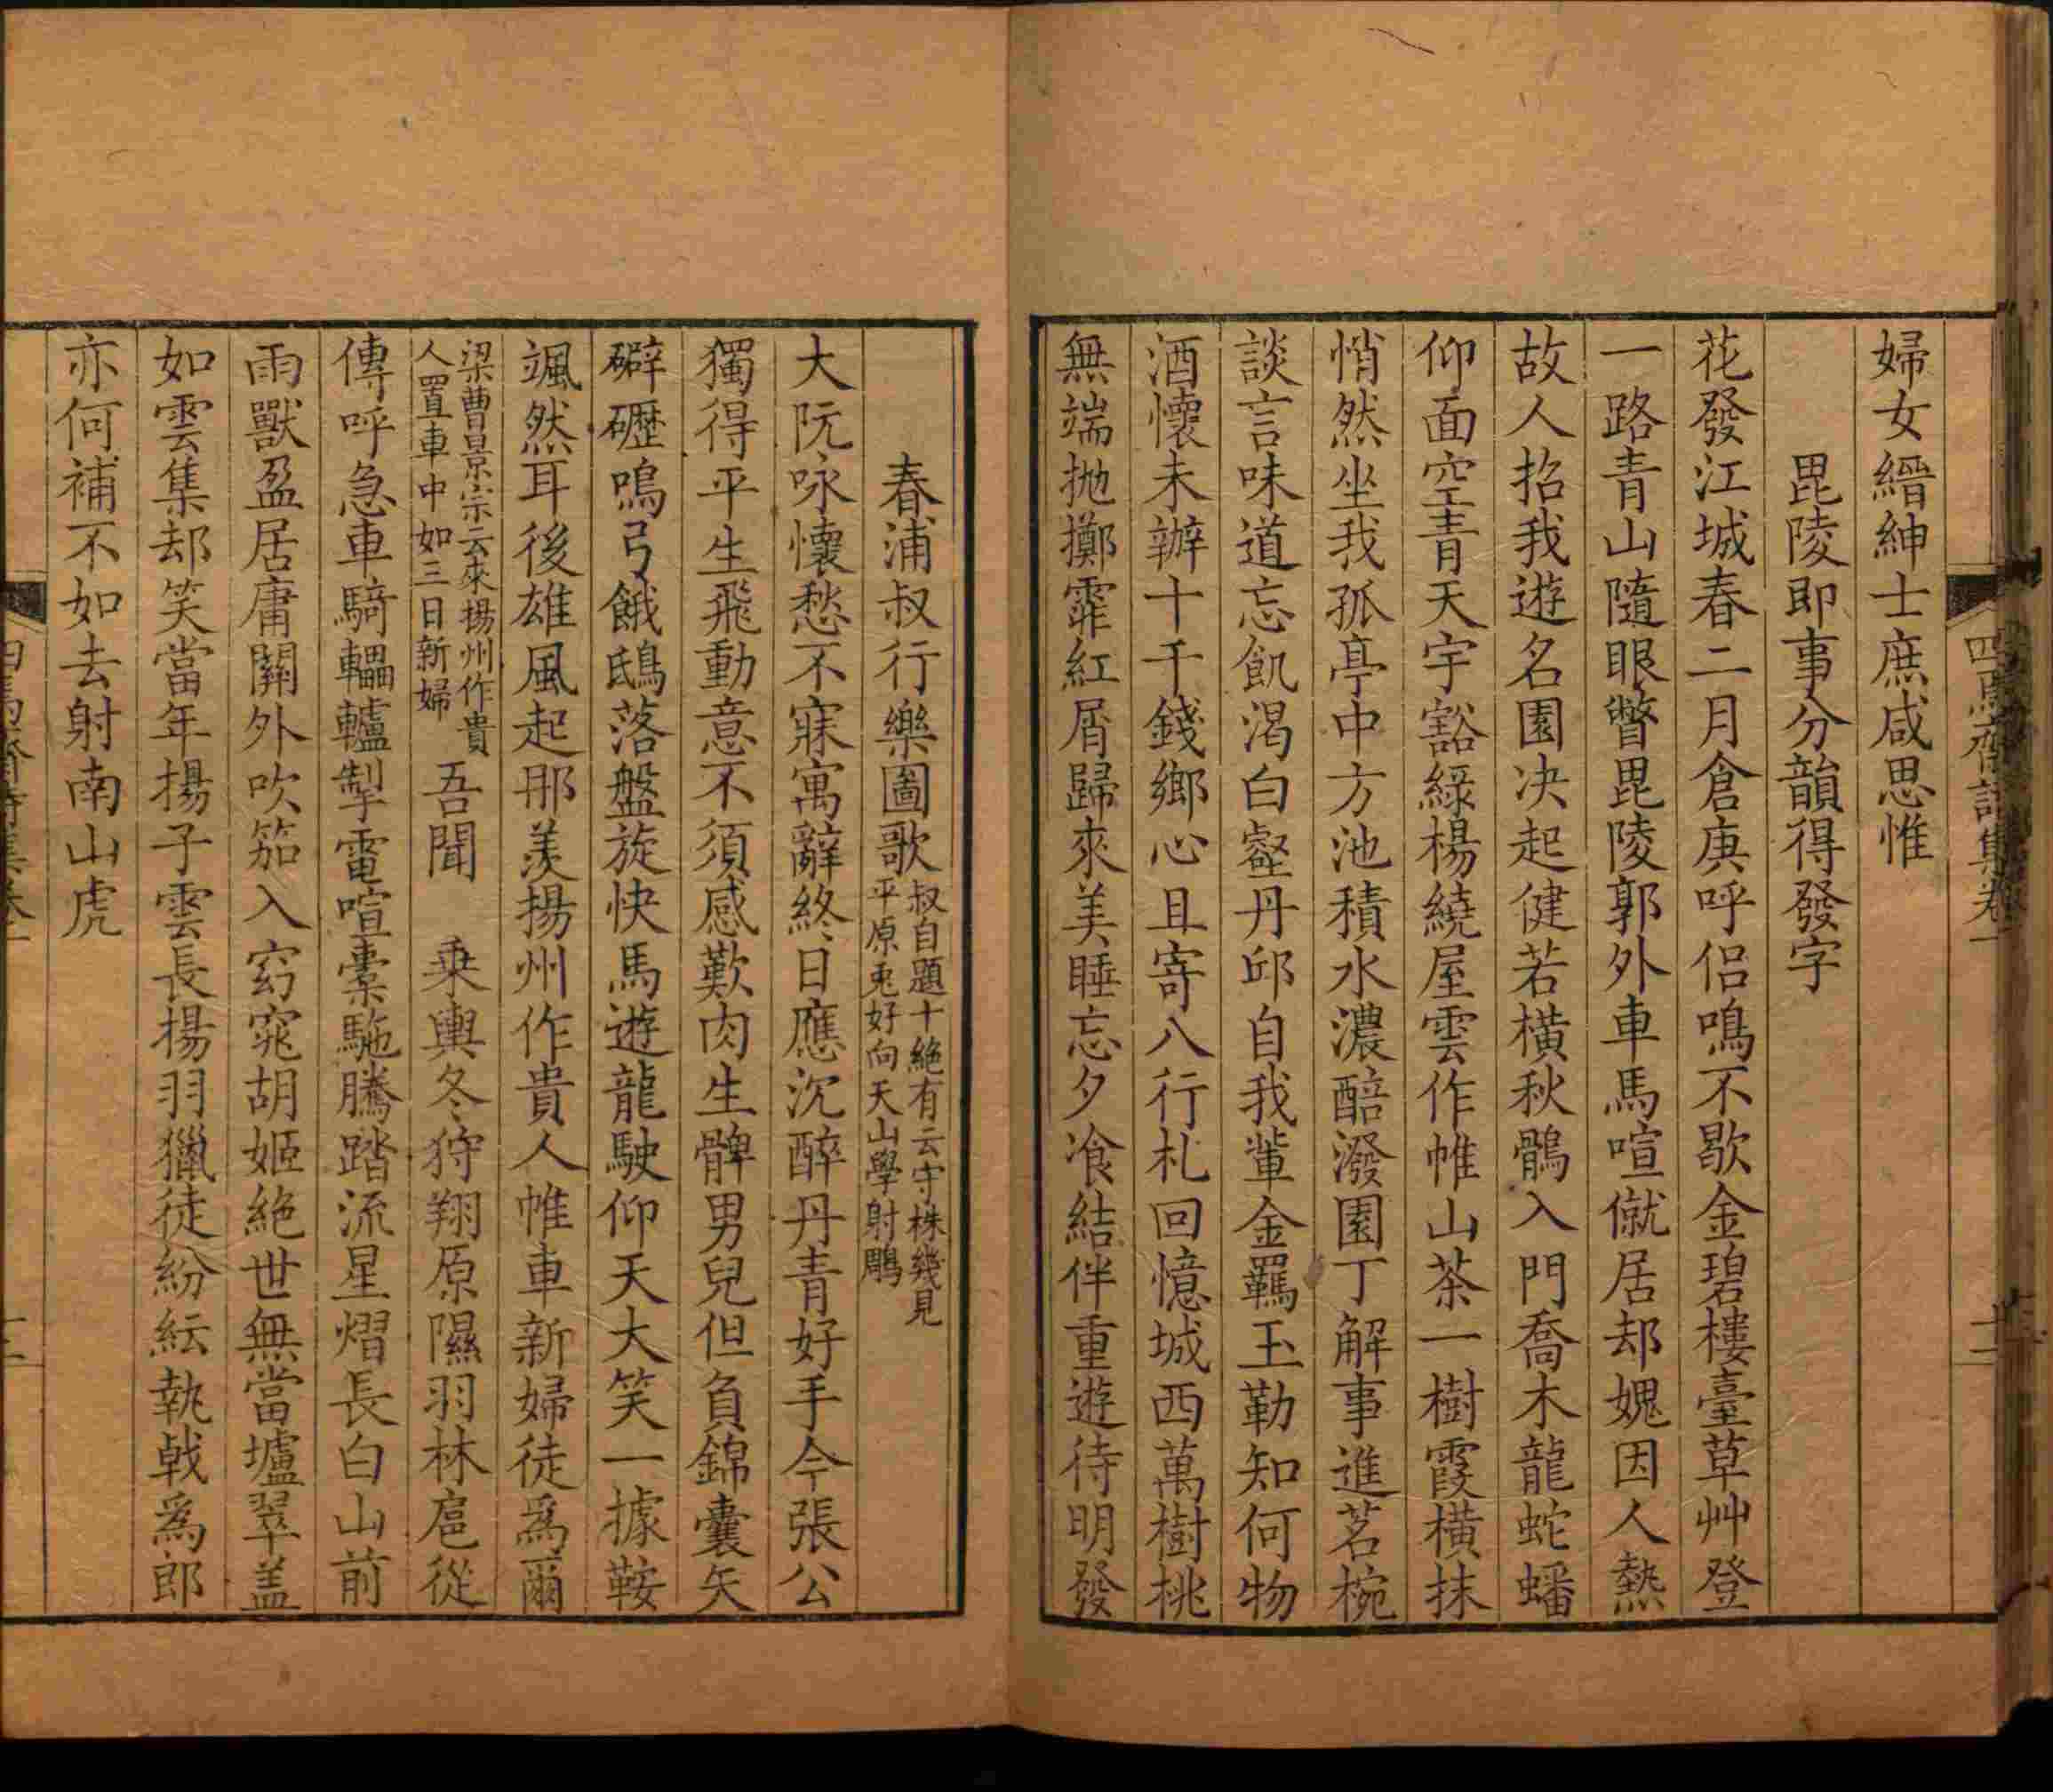 婦女縉紳士庶咸思惟
毘陵即事分韻得發字
花發江城春二月倉庚呼侣鳴不歇金碧樓臺草艸登
一路青山隨眼瞥毘陵郭外車馬喧僦居却媿因人熱
故人招我遊名園决起健若橫秋鶻入門喬木龍蛇蟠
仰面空青天宇豁綠楊繞屋雲作帷山茶一樹霞橫抹
悄然坐我孤亭中方池積水濃醅潑園丁解事進茗椀
談言味道忘飢渴白壑丹邱自我輩金羈玉勒知何物
酒懷未辦十千錢鄉心且寄八行札回憶城西萬樹桃
無端抛擲霏紅屑歸來美睡忘夕飡結伴重遊待明發
春浦叔行樂圖歌叔自題十絶有云守株幾見平原兎好向天山學射鵰
大阮咏懷愁不寐寓辭終日應沉醉丹青好手今張公
獨得平生飛動意不須感歎肉生髀男兒但負錦囊矢
礔礰鳴弓餓鴟落盤旋快馬遊龍駛仰天大笑一據鞍
颯然耳後雄風起那羡揚州作貴人帷車新婦徒爲爾
梁曹景宗云來揚州作貴人置車中如三日新婦 吾聞 乗輿冬狩翔原隰羽林扈從
傳呼急車騎轠轤掣電喧橐駞騰踏流星熠長白山前
雨獸盈居庸關外吹笳入窈窕胡姬絶世無當壚翠盖
如雲集却笑當年揚子雲長楊羽獵徒紛紜執戟爲郎
亦何補不如去射南山虎